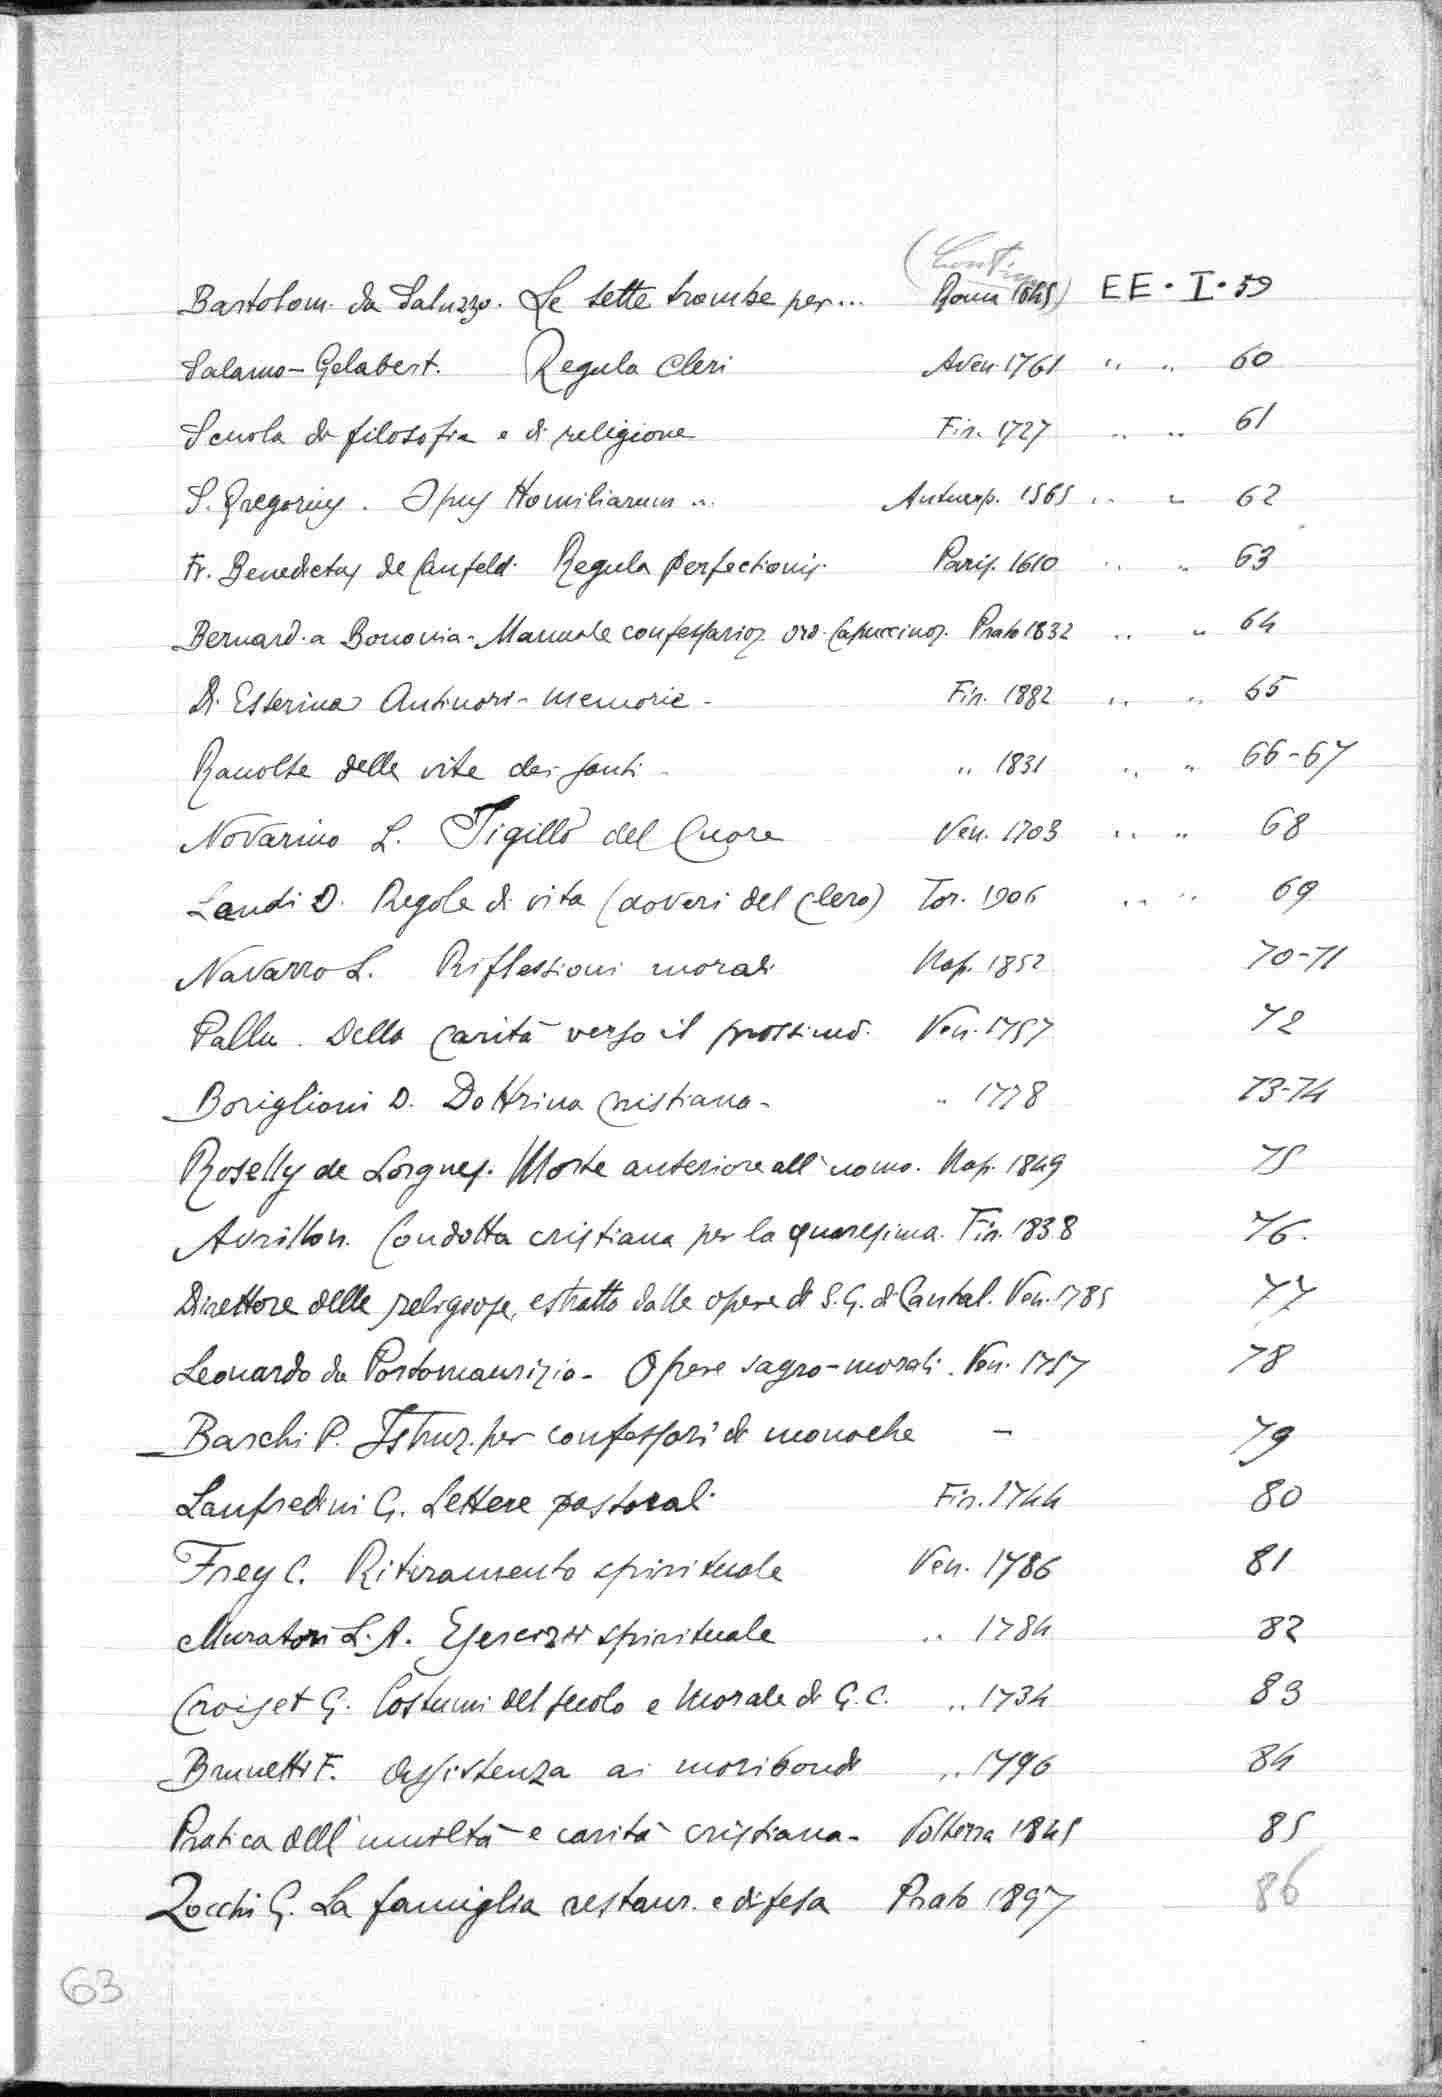 Bartolom. da Saluzzo. Le sette trombe per... Roma 1645) EE. I. 59
Salamo-Gelabert. Regula Cleri Aven. 1761 " " 60
Scuola di filosofia e di religione Fir. 1727 " " 61
S. Gregorius. Opus Homiliarum ... Antuerp. 1565 " " 62
Fr. Benedictus de Canfeld. Regula Perfectionis. Paris. 1610 " " 63
Bernard. a Bononia - Manuale confessarior. ord. Capuccinor. Prato 1832 " " 64
Di Esterina Antinori - Memorie - Fir. 1882 " " 65
Racolte delle vite dei santi - " 1831 " " 66-67
Novarino L. Sigillo del Cuore Ven. 1703 " " 68
Landi D. Regole di vita (doveri del clero) Tor. 1906 " " 69
Navarro L. Riflessioni morali Nap. 1852 70-71
Pallu. Della carità verso il prossimo. Ven. 1757 72
Boriglioni D. Dottrina cristiana - " 1778 73-74
Roselly de Lorgues. Morte anteriore all'uomo. Nap. 1849 75
Avrillon. Condotta cristiana per la quaresima. Fir. 1838 76.
Direttore delle religiose, estratto dalle opere di S. G. di Cantal. Ven. 1785 77
Leonardo da Portomaurizio - Opere sagro-morali. Ven. 1757 78
Barchi P. Istruz. per confessori di monache - 79
Lanfredini G. Lettere pastorali Fir. 1744 80
Frey C. Ritiramento spirituale Ven. 1786 81
Muratori L. A. Esercizii spirituale " 1784 82
Croiset G. Costumi del secolo e Morale di G. C. " 1734 83
Brunetti F. Assistenza ai moribondi " 1796 84
Pratica dell'umiltà e carità cristiana - Volterra 1845 85
Zocchi G. La famiglia restaur. e difesa Prato 1897 86
63